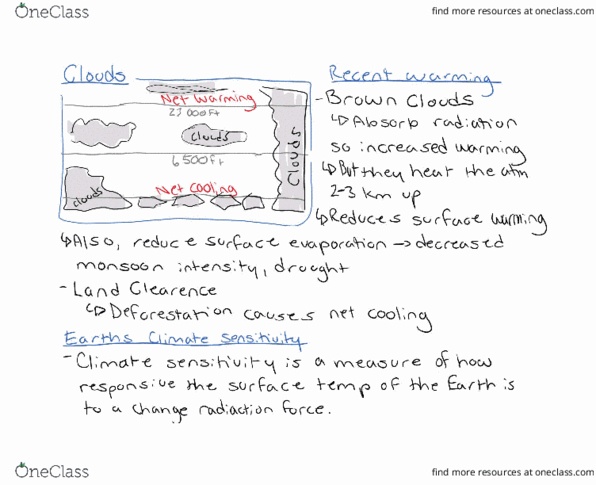 OneClass
find more resources at oneclass.com
Clouds
Net warming
23 000 ft
Clouds
6 500 ft
Net cooling
clouds
Clouds
Recent warming
- Brown Clouds
↳ Absorb radiation
so increased warming
↳ But they heat the atm
2-3 km up
↳ Reduces surface warming
↳ Also, reduce surface evaporation → decreased
monsoon intensity, drought
- Land Clearence
↳ Deforestation causes net cooling
Earths Climate Sensitivity
- Climate sensitivity is a measure of how
responsive the surface temp of the Earth is
to a change radiaction force.
OneClass
find more resources at oneclass.com